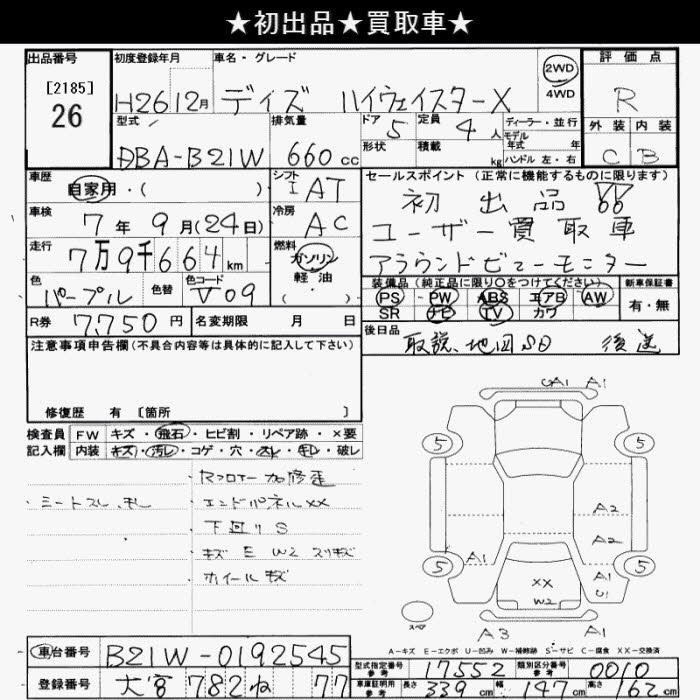 ★初出品★買取車★
出品番号 初度登録年月 車名・グレード 評価点
[2185]
26
H26 12月 デイズ ハイウェイスターX 2WD 4WD R
型式 排気量 ドア 定員 ディーラー・並行 外装 内装
DBA-B21W 660cc 5 4人 モデル年式 年式 C B
形状 積載 kg ハンドル 左・右
車歴 シフト セールスポイント (正常に機能するものに限ります)
自家用・( ) I AT 初出品
車検 冷房 ユーザー買取車
7年9月(24日) AC アラウンドビューモニター
走行 燃料
7万9千664km ガソリン 軽油
装備品(純正品に限り〇をつけてください) 新車保証書
色 色替 色コード PS PW ABS エアB AW 有・無
パープル V09 SR ナビ TV カワ
R券 7,750円 名変期限 月 日 後日品 取説、地図SD 後送
注意事項申告欄(不具合内容等は具体的に記入して下さい)
修復歴 有 [箇所 ]
検査員 FW キズ・飛石・ヒビ割・リペア跡・×要
記入欄 内装 キズ・汚レ・コゲ・穴・スレ・キレ・破レ
Rフロアー 加修歪
・エンドパネルXX
・下回りS
・キズ E W2 スリキズ
ホイールキズ
UA1 A1
5 5
A2
A2
A1 5 5
A1
U1
XX
W2
スペア A3 A1
A-キズ E-エクボ U-凹み W-補修跡 S-サビ C-腐食 XX-交換済
車台番号 B21W-0192545
登録番号 大宮 782 ね 77
型式指定番号 参考 17552 類別区分番号 参考 0010
車庫証明用 参考 長さ 339cm 幅 147cm 高さ 162cm